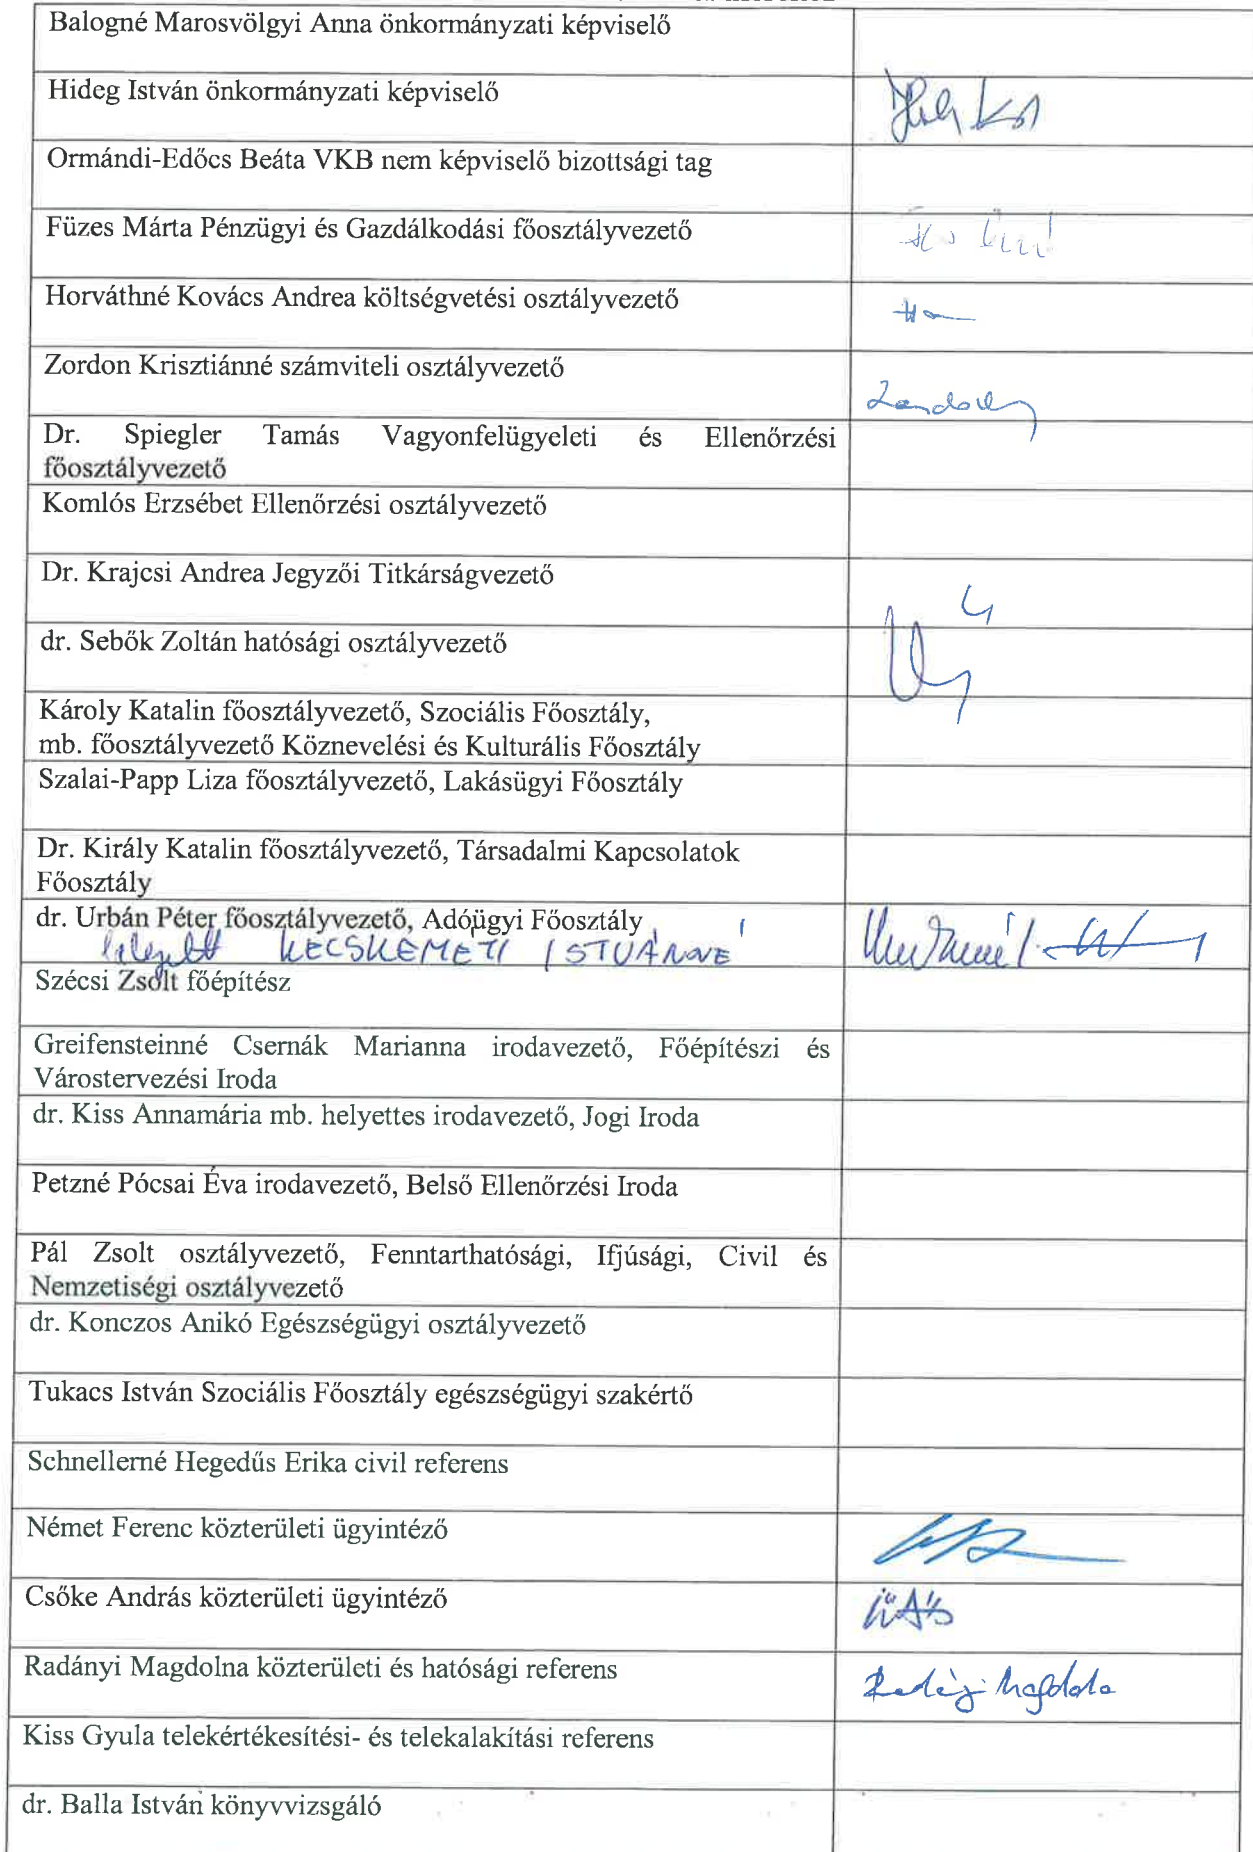 Balogné Marosvölgyi Anna önkormányzati képviselő
Hideg István önkormányzati képviselő
Ormándi-Edőcs Beáta VKB nem képviselő bizottsági tag
Füzes Márta Pénzügyi és Gazdálkodási főosztályvezető
Horváthné Kovács Andrea költségvetési osztályvezető
Zordon Krisztiánné számviteli osztályvezető
Dr. Spiegler Tamás Vagyonfelügyeleti és Ellenőrzési
főosztályvezető
Komlós Erzsébet Ellenőrzési osztályvezető
Dr. Krajcsi Andrea Jegyzői Titkárságvezető
dr. Sebők Zoltán hatósági osztályvezető
Károly Katalin főosztályvezető, Szociális Főosztály,
mb. főosztályvezető Köznevelési és Kulturális Főosztály
Szalai-Papp Liza főosztályvezető, Lakásügyi Főosztály
Dr. Király Katalin főosztályvezető, Társadalmi Kapcsolatok
Főosztály
dr. Urbán Péter főosztályvezető, Adóügyi Főosztály
KECSKEMÉTI ISTVÁNNÉ
Szécsi Zsolt főépítész
Greifensteinné Csernák Marianna irodavezető, Főépítészi és
Várostervezési Iroda
dr. Kiss Annamária mb. helyettes irodavezető, Jogi Iroda
Petzné Pócsai Éva irodavezető, Belső Ellenőrzési Iroda
Pál Zsolt osztályvezető, Fenntarthatósági, Ifjúsági, Civil és
Nemzetiségi osztályvezető
dr. Konczos Anikó Egészségügyi osztályvezető
Tukacs István Szociális Főosztály egészségügyi szakértő
Schnellerné Hegedűs Erika civil referens
Német Ferenc közterületi ügyintéző
Csőke András közterületi ügyintéző
Radányi Magdolna közterületi és hatósági referens
Kiss Gyula telekértékesítési- és telekalakítási referens
dr. Balla István könyvvizsgáló